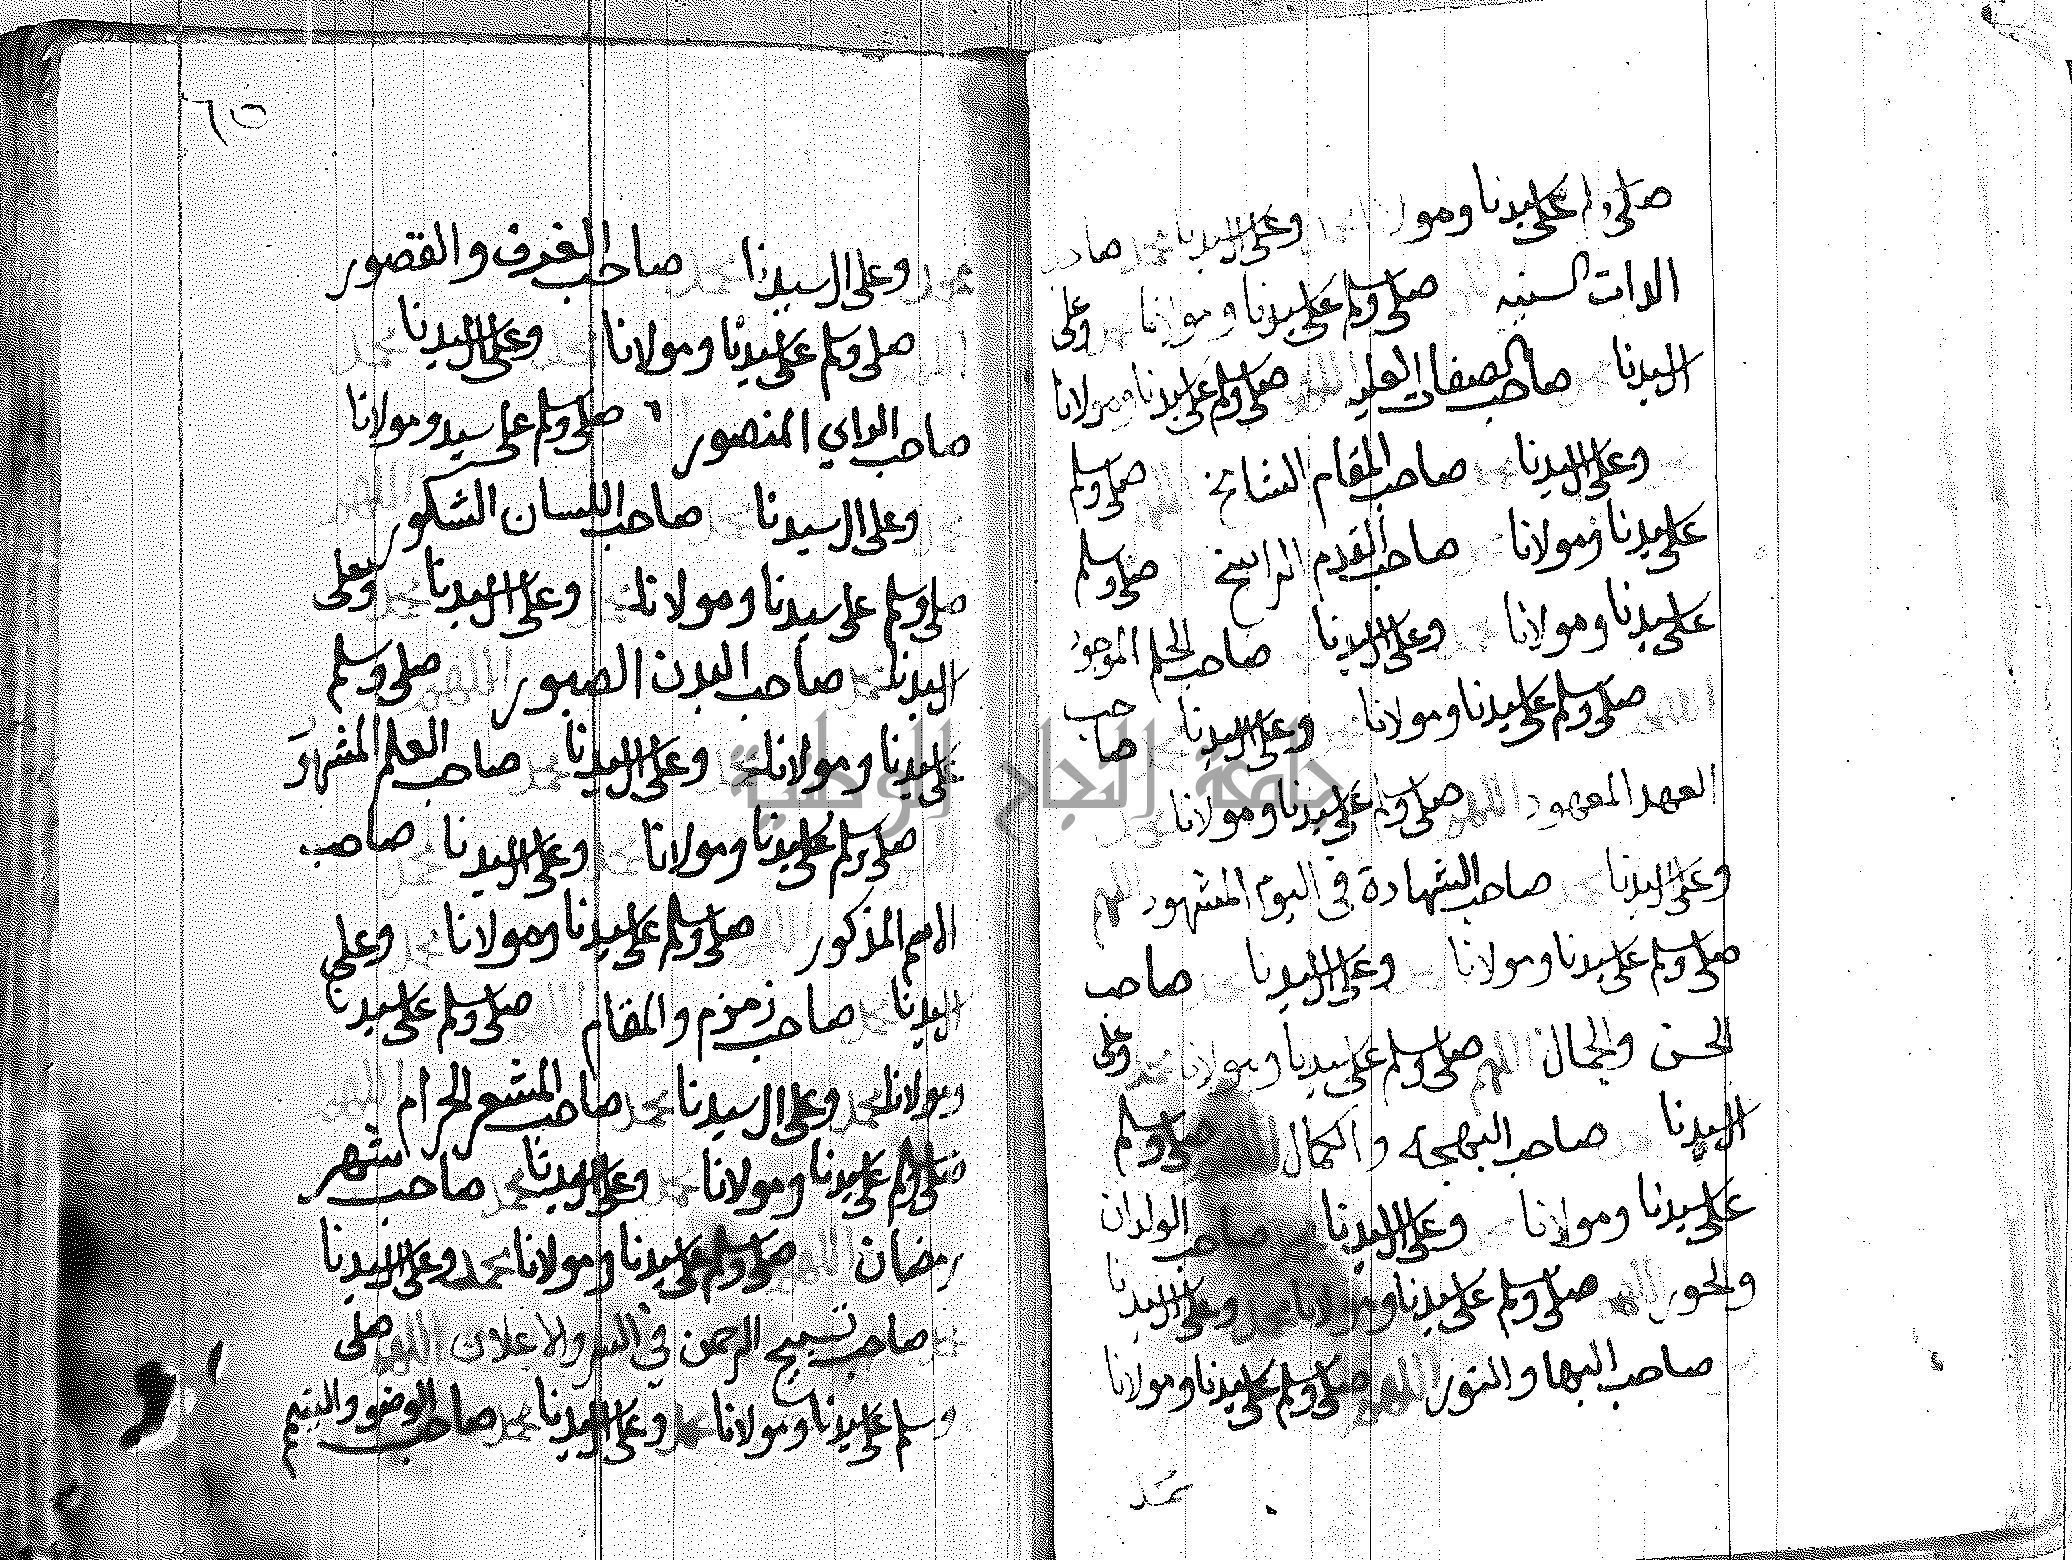 صلي وسلم على سيدنا ومولانا محمد وعلى ال سيدنا محمد صاحب
الدات السنيه اللهم صلي وسلم على سيدنا ومولانا محمد وعلى
ال سيدنا صاحب الصفات العليه اللهم صلي وسلم على سيدنا ومولانا
وعلى ال سيدنا صاحب المقام الشامخ اللهم صلي وسلم
على سيدنا ومولانا صاحب القدم الراسخ صلي وسلم
على سيدنا ومولانا وعلى ال سيدنا صاحب الحلم الموجود
اللهم صلي وسلم على سيدنا ومولانا وعلى ال سيدنا صاحب
العهد المعهود اللهم صلي وسلم على سيدنا ومولانا محمد
وعلى ال سيدنا صاحب الشهادة في اليوم المشهود اللهم
صلي وسلم على سيدنا ومولانا وعلى ال سيدنا صاحب
الحسن والجمال اللهم صلي وسلم على سيدنا ومولانا محمد وعلى
ال سيدنا صاحب البهجة والكمال صلي وسلم
على سيدنا ومولانا وعلى ال سيدنا صاحب الولدان
والحور اللهم صلي وسلم على سيدنا ومولانا وعلى ال سيدنا
صاحب البها والنور اللهم صلي وسلم على سيدنا ومولانا
محمد
٦٥
محمد وعلى ال سيدنا محمد صاحب الغرف والقصور
صلي وسلم على سيدنا ومولانا محمد وعلى ال سيدنا محمد
صاحب الراي المنصور صلي وسلم على سيد ومولانا
وعلى ال سيدنا صاحب اللسان الشكور اللهم
صلي وسلم على سيدنا ومولانا محمد وعلى ال سيدنا محمد وعلى
ال سيدنا محمد صاحب البدن الصبور اللهم صلي وسلم
على سيدنا ومولانا محمد وعلى ال سيدنا محمد صاحب العلم المشهور
صلي وسلم على سيدنا ومولانا محمد وعلى ال سيدنا محمد صاحب
الاسم المذكور اللهم صلي وسلم على سيدنا ومولانا محمد وعلى
ال سيدنا محمد صاحب زمزم والمقام اللهم صلي وسلم على سيدنا
ومولانا محمد وعلى ال سيدنا محمد صاحب المشعر الحرام اللهم
صلي وسلم على سيدنا ومولانا محمد وعلى ال سيدنا محمد صاحب شهر
رمضان اللهم صلي وسلم على سيدنا ومولانا محمد وعلى ال سيدنا
محمد صاحب تسبيح الرحمن في السر والاعلان اللهم صلي
وسلم على سيدنا ومولانا محمد وعلى ال سيدنا محمد صاحب الوضو والتيمم
جامعة النجاح الوطنية